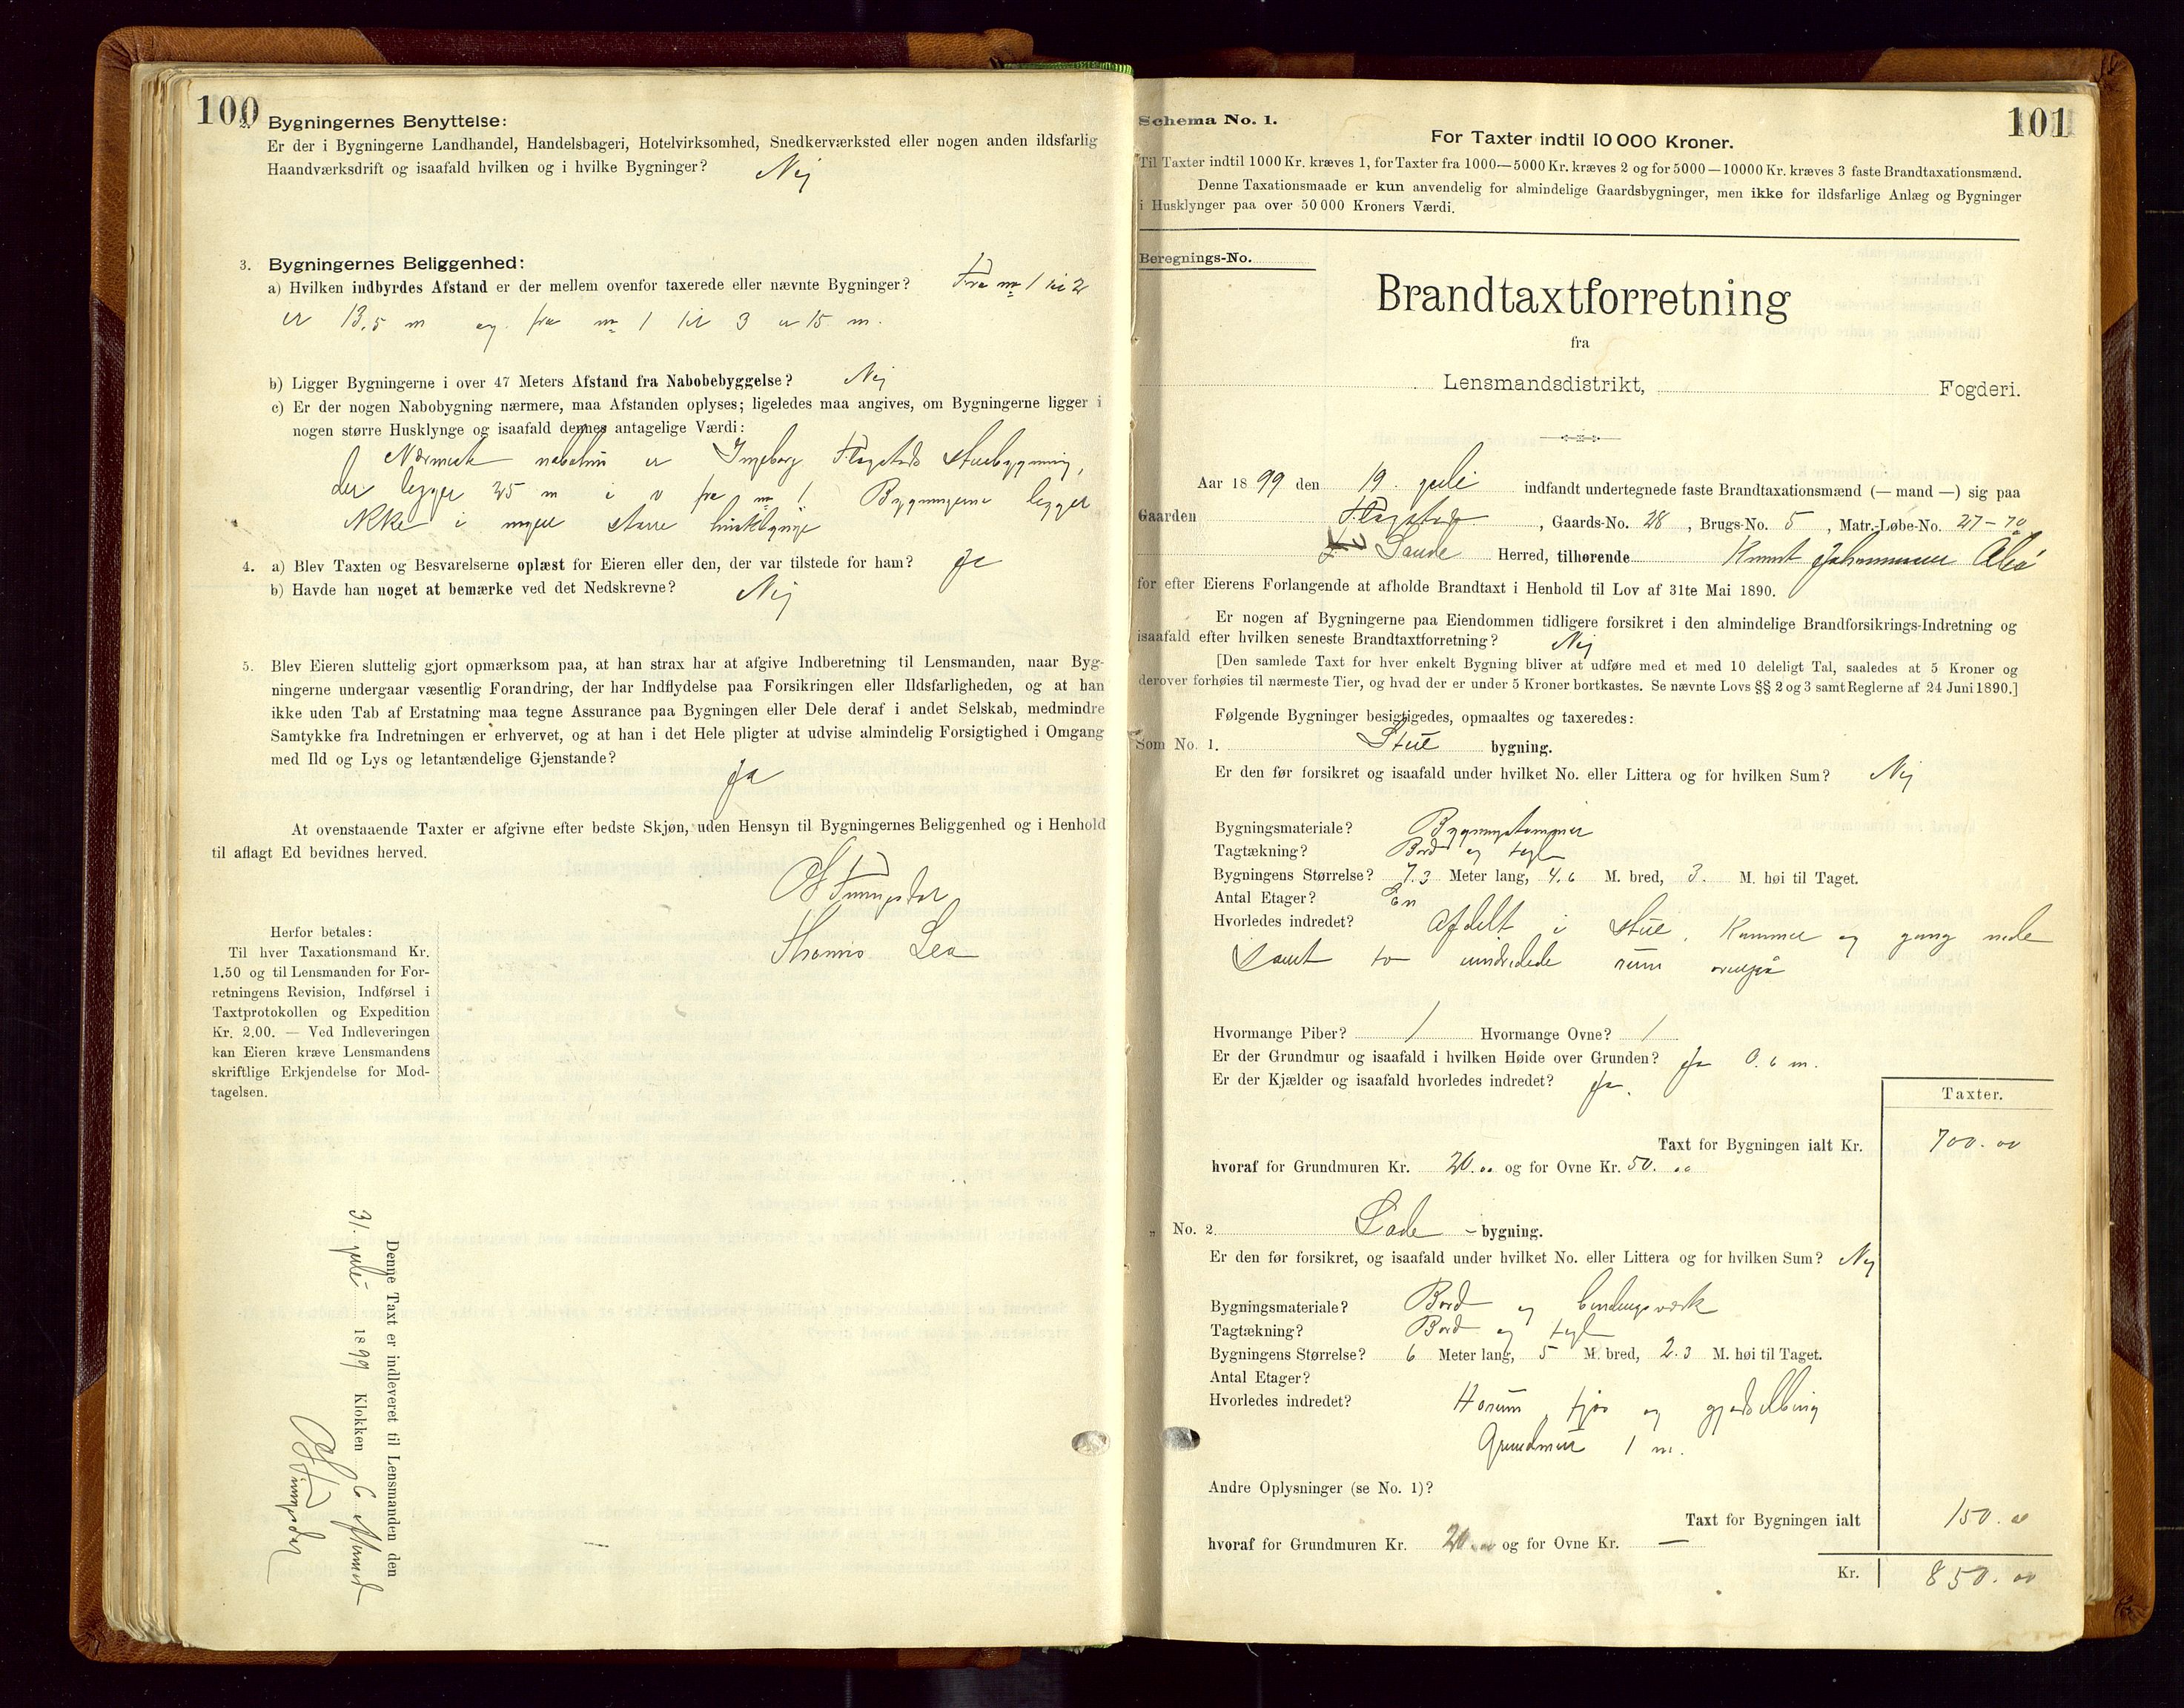 100
2. Bygningernes Benyttelse:
Er der i Bygningerne Landhandel, Handelsbageri, Hotelvirksomhed, Snedkerværksted eller nogen anden ildsfarlig
Haandværksdrift og isaafald hvilken og i hvilke Bygninger? Nej
3. Bygningernes Beliggenhed:
a) Hvilken indbyrdes Afstand er der mellem ovenfor taxerede eller nævnte Bygninger? Fra no 1 til 2
er 13,5 m og fra no 1 til 3 er 15 m.
b) Ligger Bygningerne i over 47 Meters Afstand fra Nabobebyggelse? Nej
c) Er der nogen Nabobygning nærmere, maa Afstanden oplyses; ligeledes maa angives, om Bygningerne ligger i
nogen større Husklynge og isaafald dennes antagelige Værdi:
Nærmest nabohus er Ingeborg Flagstads stuebygning,
der ligger 25 m i v fra no 1. Bygningerne ligger
ikke i nogen større husklynge
4. a) Blev Taxten og Besvarelserne oplæst for Eieren eller den, der var tilstede for ham? Ja
b) Havde han noget at bemærke ved det Nedskrevne? Nej
5. Blev Eieren sluttelig gjort opmærksom paa, at han strax har at afgive Indberetning til Lensmanden, naar Byg-
ningerne undergaar væsentlig Forandring, der har Indflydelse paa Forsikringen eller Ildsfarligheden, og at han
ikke uden Tab af Erstatning maa tegne Assurance paa Bygningen eller Dele deraf i andet Selskab, medmindre
Samtykke fra Indretningen er erhvervet, og at han i det Hele pligter at udvise almindelig Forsigtighed i Omgang
med Ild og Lys og letantændelige Gjenstande?
Ja
At ovenstaaende Taxter er afgivne efter bedste Skjøn, uden Hensyn til Bygningernes Beliggenhed og i Henhold
til aflagt Ed bevidnes herved.
Thomas Lea
Herfor betales:
Til hver Taxationsmand Kr.
1.50 og til Lensmanden for For-
retningens Revision, Indførsel i
Taxtprotokollen og Expedition
Kr. 2.00. — Ved Indleveringen
kan Eieren kræve Lensmandens
skriftlige Erkjendelse for Mod-
tagelsen.
Denne Taxt er indleveret til Lensmanden den
31. juli 1899 Klokken 6
101
Schema No. 1.
For Taxter indtil 10 000 Kroner.
Til Taxter indtil 1000 Kr. kræves 1, for Taxter fra 1000—5000 Kr. kræves 2 og for 5000—10000 Kr. kræves 3 faste Brandtaxationsmænd.
Denne Taxationsmaade er kun anvendelig for almindelige Gaardsbygninger, men ikke for ildsfarlige Anlæg og Bygninger
i Husklynger paa over 50 000 Kroners Værdi.
Beregnings-No.
Brandtaxtforretning
fra
Lensmandsdistrikt, Fogderi.
Aar 1899 den 19. juli indfandt undertegnede faste Brandtaxationsmænd (— mand —) sig paa
Gaarden Flagstad, Gaards-No. 28, Brugs-No. 5, Matr.-Løbe-No. 27-70
Herred, tilhørende Knut Johannesen
for efter Eierens Forlangende at afholde Brandtaxt i Henhold til Lov af 31te Mai 1890.
Er nogen af Bygningerne paa Eiendommen tidligere forsikret i den almindelige Brandforsikrings-Indretning og
isaafald efter hvilken seneste Brandtaxtforretning? Nej
[Den samlede Taxt for hver enkelt Bygning bliver at udføre med et med 10 deleligt Tal, saaledes at 5 Kroner og
derover forhøies til nærmeste Tier, og hvad der er under 5 Kroner bortkastes. Se nævnte Lovs §§ 2 og 3 samt Reglerne af 24 Juni 1890.]
Følgende Bygninger besigtigedes, opmaaltes og taxeredes:
Som No. 1. Stue bygning.
Er den før forsikret og isaafald under hvilket No. eller Littera og for hvilken Sum? Nej
Bygningsmateriale? Bygningstømmer
Tagtækning? Bord og tegl
Bygningens Størrelse? 7.3 Meter lang, 4.6 M. bred, 3. M. høi til Taget.
Antal Etager? En
Hvorledes indredet? Afdelt i stue, kammer og gang nede
samt to uindredede rum ovenpaa
Hvormange Piber? 1 Hvormange Ovne? 1
Er der Grundmur og isaafald i hvilken Høide over Grunden? Ja 0.6 m.
Er der Kjælder og isaafald hvorledes indredet? Ja.
Taxter.
Taxt for Bygningen ialt Kr. 700.00
hvoraf for Grundmuren Kr. 20.00 og for Ovne Kr. 50.00
„ No. 2. Lade - bygning.
Er den før forsikret, og isaafald under hvilket No. eller Littera og for hvilken Sum? Nej
Bygningsmateriale? Bord og bindingsværk
Tagtækning? Bord og tegl
Bygningens Størrelse? 6 Meter lang, 5 M. bred, 2.3 M. høi til Taget.
Antal Etager?
Hvorledes indredet? Hørum, fjøs og gjødselbing
Grundmur 1 m.
Andre Oplysninger (se No. 1)?
Taxt for Bygningen ialt 150.00
hvoraf for Grundmuren Kr. 20.00 og for Ovne Kr. —
Kr. 850.00